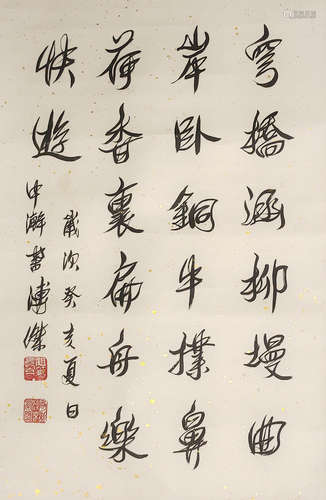 穹橋涵柳堤曲
岸臥銅牛撲鼻
荷香裏扁舟樂
快遊
歲次癸亥夏日
中澣書溥傑